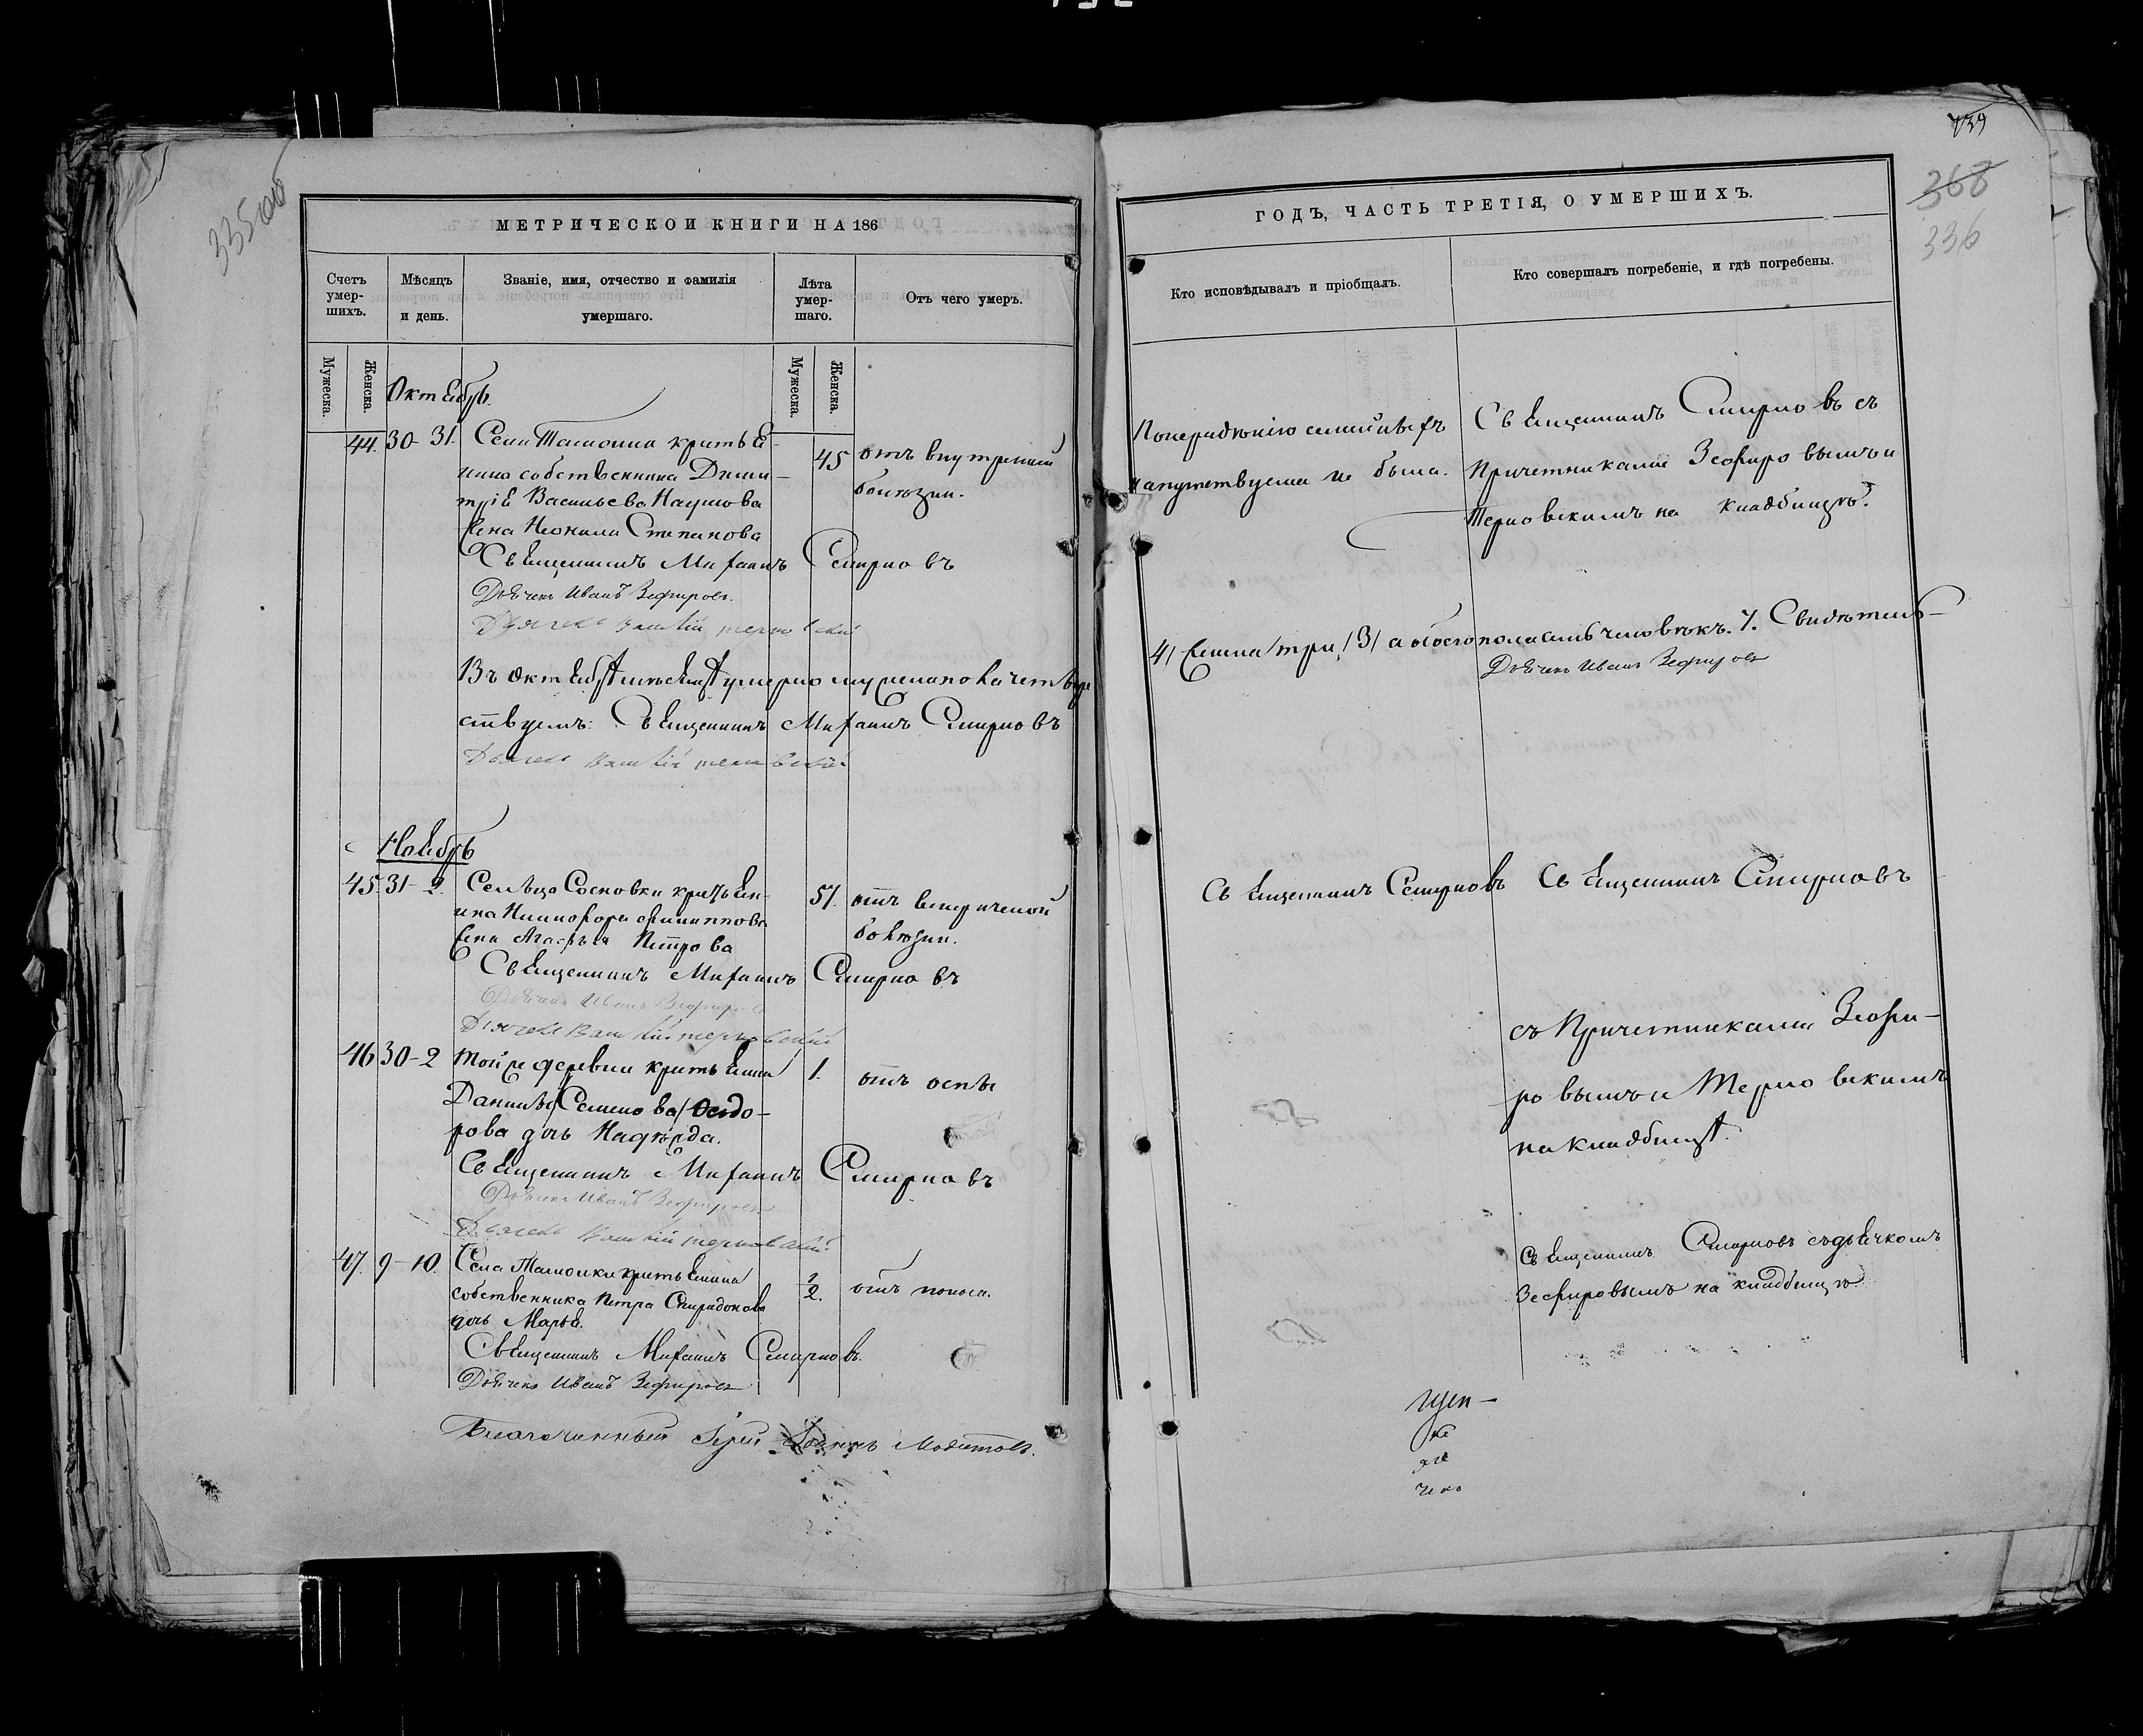 739
335 об
368
336
МЕТРИЧЕСКОЙ КНИГИ НА 186
ГОДЪ, ЧАСТЬ ТРЕТІЯ, О УМЕРШИХЪ.
Счетъ умер-шихъ.
Мѣсяцъ и день.
Званіе, имя, отчество и фамилія умершаго.
Лѣта умер-шаго.
Отъ чего умеръ.
Кто исповѣдывалъ и пріобщалъ.
Кто совершалъ погребеніе, и гдѣ погребены.
Мужеска.
Женска.
Мужеска.
Женска.
Октябрь.
44. 30-31. Села кресть я-
нина собственника Дими-
трія Васильева Наумова
жена Неонила Степанова
45 отъ внутренней
болѣзни.
По нерадѣнію семейныхъ
напутствуема не была.
Священникъ Смирновъ съ
Причетниками Зефировымъ и
Терновскимъ на кладбищѣ.
Священникъ Михаилъ Смирновъ
Дьячекъ Иванъ Зефировъ.
Дьячекъ Василій Терновскій
Въ Октябрѣ мѣсяцѣ умерло мужеска пола четыре
/4/ женска три /3/ а обоего пола семь человѣкъ. 7. Свидѣтель-
Дьячекъ Иванъ Зефировъ
ствуемъ: Священникъ Михаилъ Смирновъ
Дьячекъ Василій Терновскій
Ноябрь
45. 31-2. Сельца Сосновки крестьян-
ина Никифора Филиппова
жена Агафья Петрова
51. отъ
болѣзни.
Священникъ Смирновъ
Священникъ Смирновъ
Священникъ Михаилъ Смирновъ
Дьячекъ Иванъ Зефировъ
Дьячекъ Василій Терновскій
съ Причетниками Зефи-
ровымъ и Терновскимъ
на кладбищѣ.
46 30-2 Той же деревни крестьянина
Данилы Семенова /Федо-
рова дочь Надежда.
1. отъ оспы
Священникъ Михаилъ Смирновъ
Дьячекъ Иванъ Зефировъ
Дьячекъ Василій Терновскій
47. 9-10. Села крестьянина
собственника Петра Спиридонова
дочь Марья.
1/2. отъ поноса.
Священникъ Смирновъ съ дьячкомъ
Зефировымъ на кладбищѣ
Священникъ Михаилъ Смирновъ.
Дьячекъ Иванъ Зефировъ
Благочинный Іерей Іоаннъ Модестовъ.